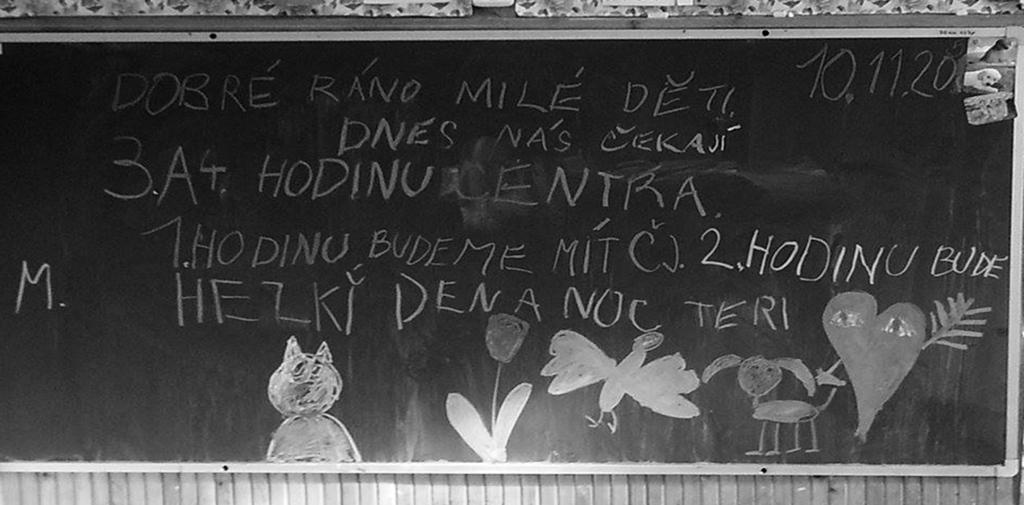 DOBRÉ RÁNO MILÉ DĚTI, 10.11.20
DNES NÁS ČEKAJÍ
3.A4. HODINU CENTRA.
1.HODINU BUDEME MÍT ČJ. 2.HODINU BUDE
M.
HEZKÍ DEN A NOC TERI